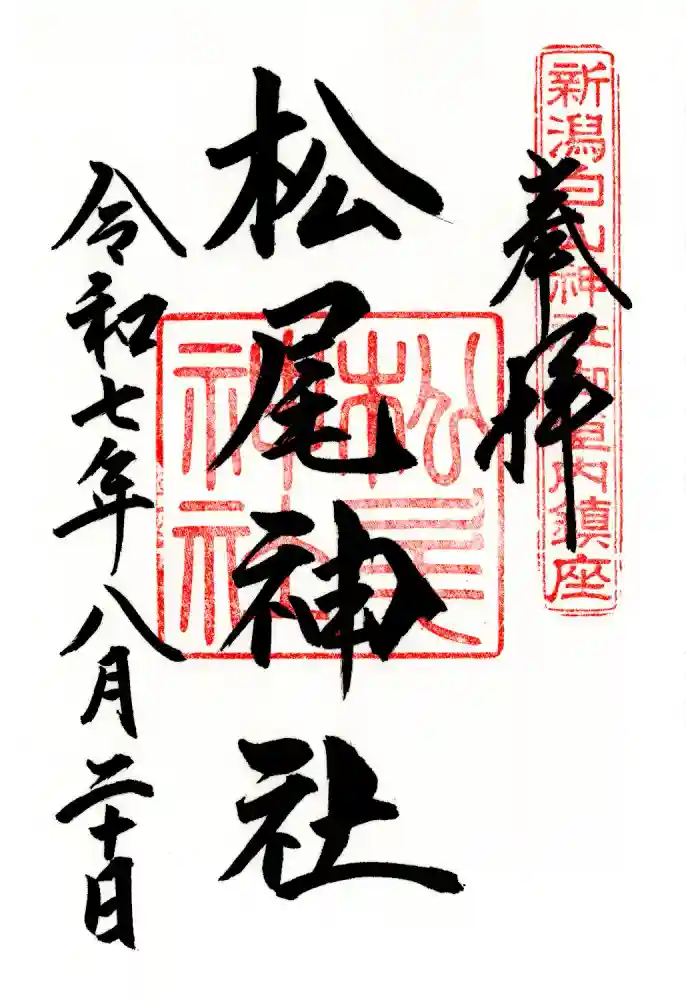 奉拝
新潟白山神社御宮内鎮座
松尾神社
松尾神社
令和七年八月二十日